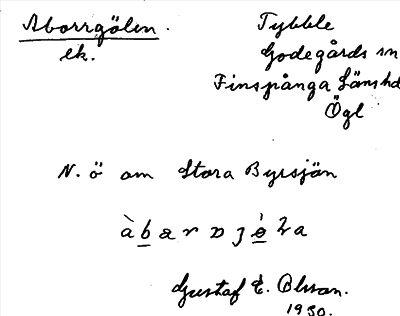 Aborrgölen.
ek.
Tybble
Godegårds sn
Finspånga länshd
Ögl
N. ö om Stora Byrsjön
Gustaf E. Olsson.
1930.